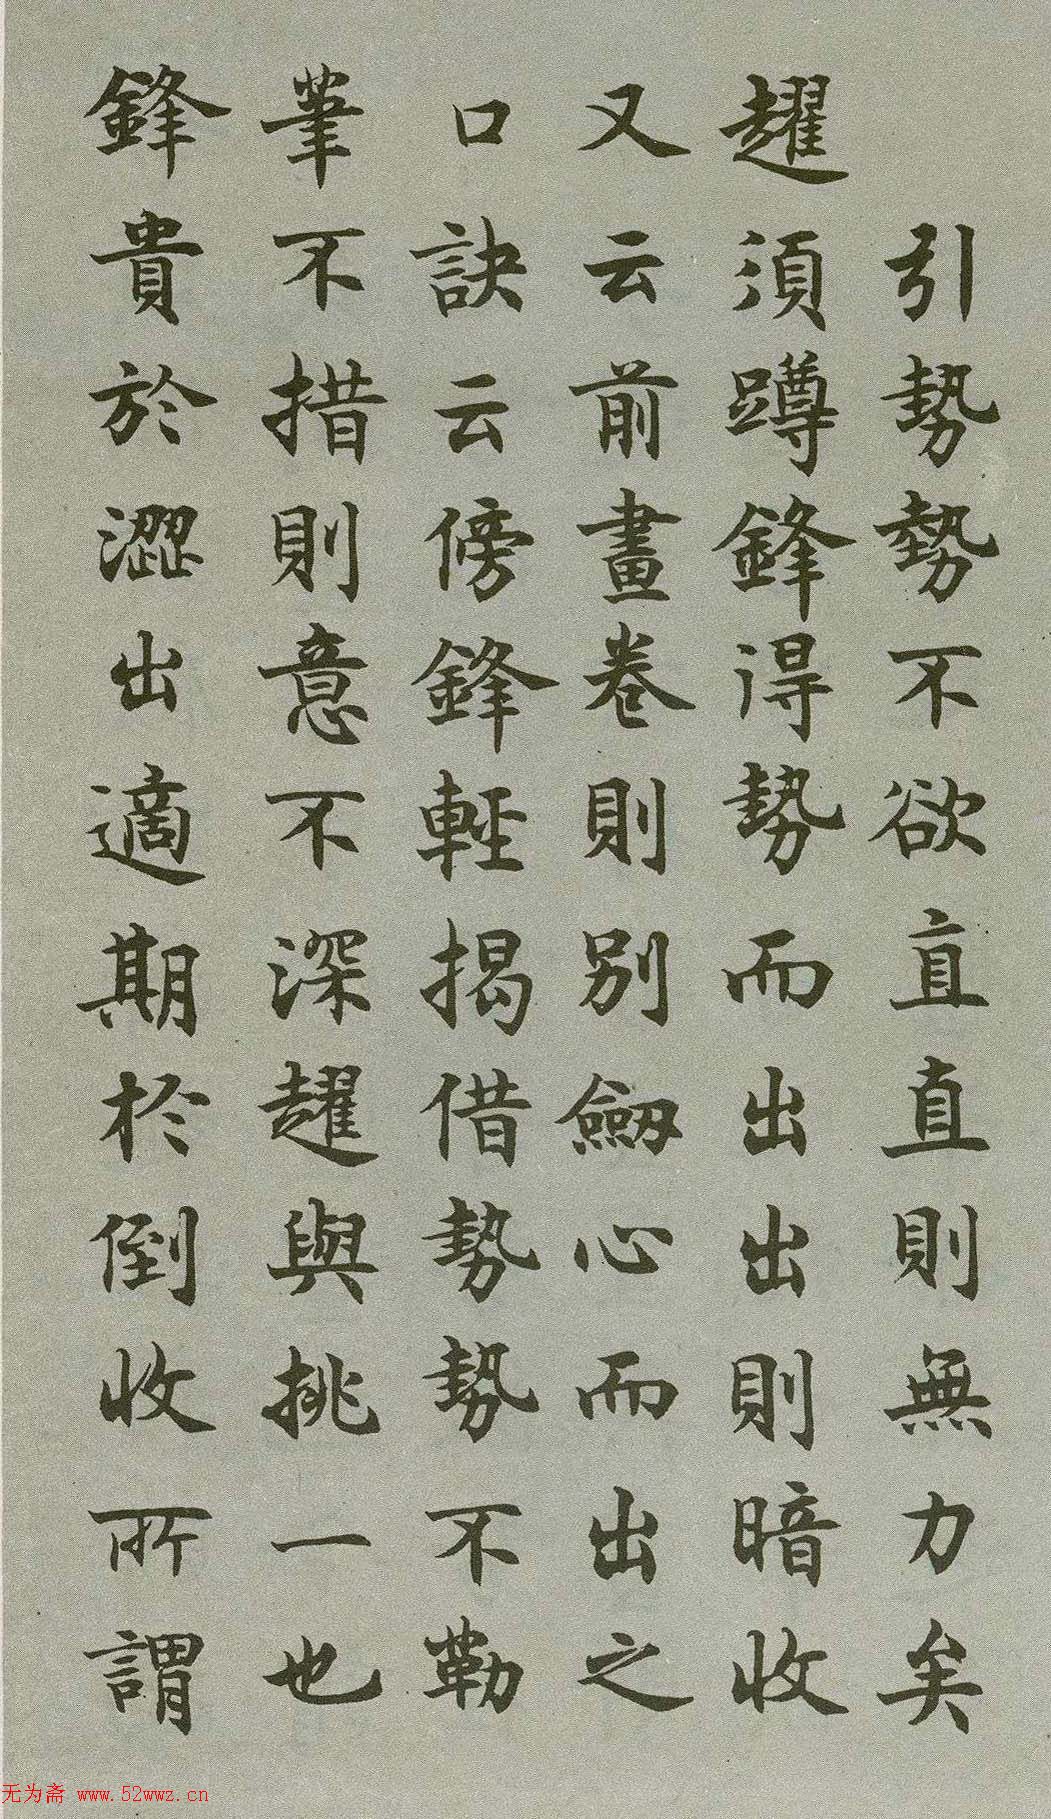 引勢勢不欲直直則無力矣
趯須蹲鋒得勢而出出則暗收
又云前畫卷則別斂心而出之
口訣云傍鋒輕揭借勢勢不勒
筆不措則意不深趯與挑一也
鋒貴於澀出適期於倒收所謂
无为斋 www.52wwz.cn